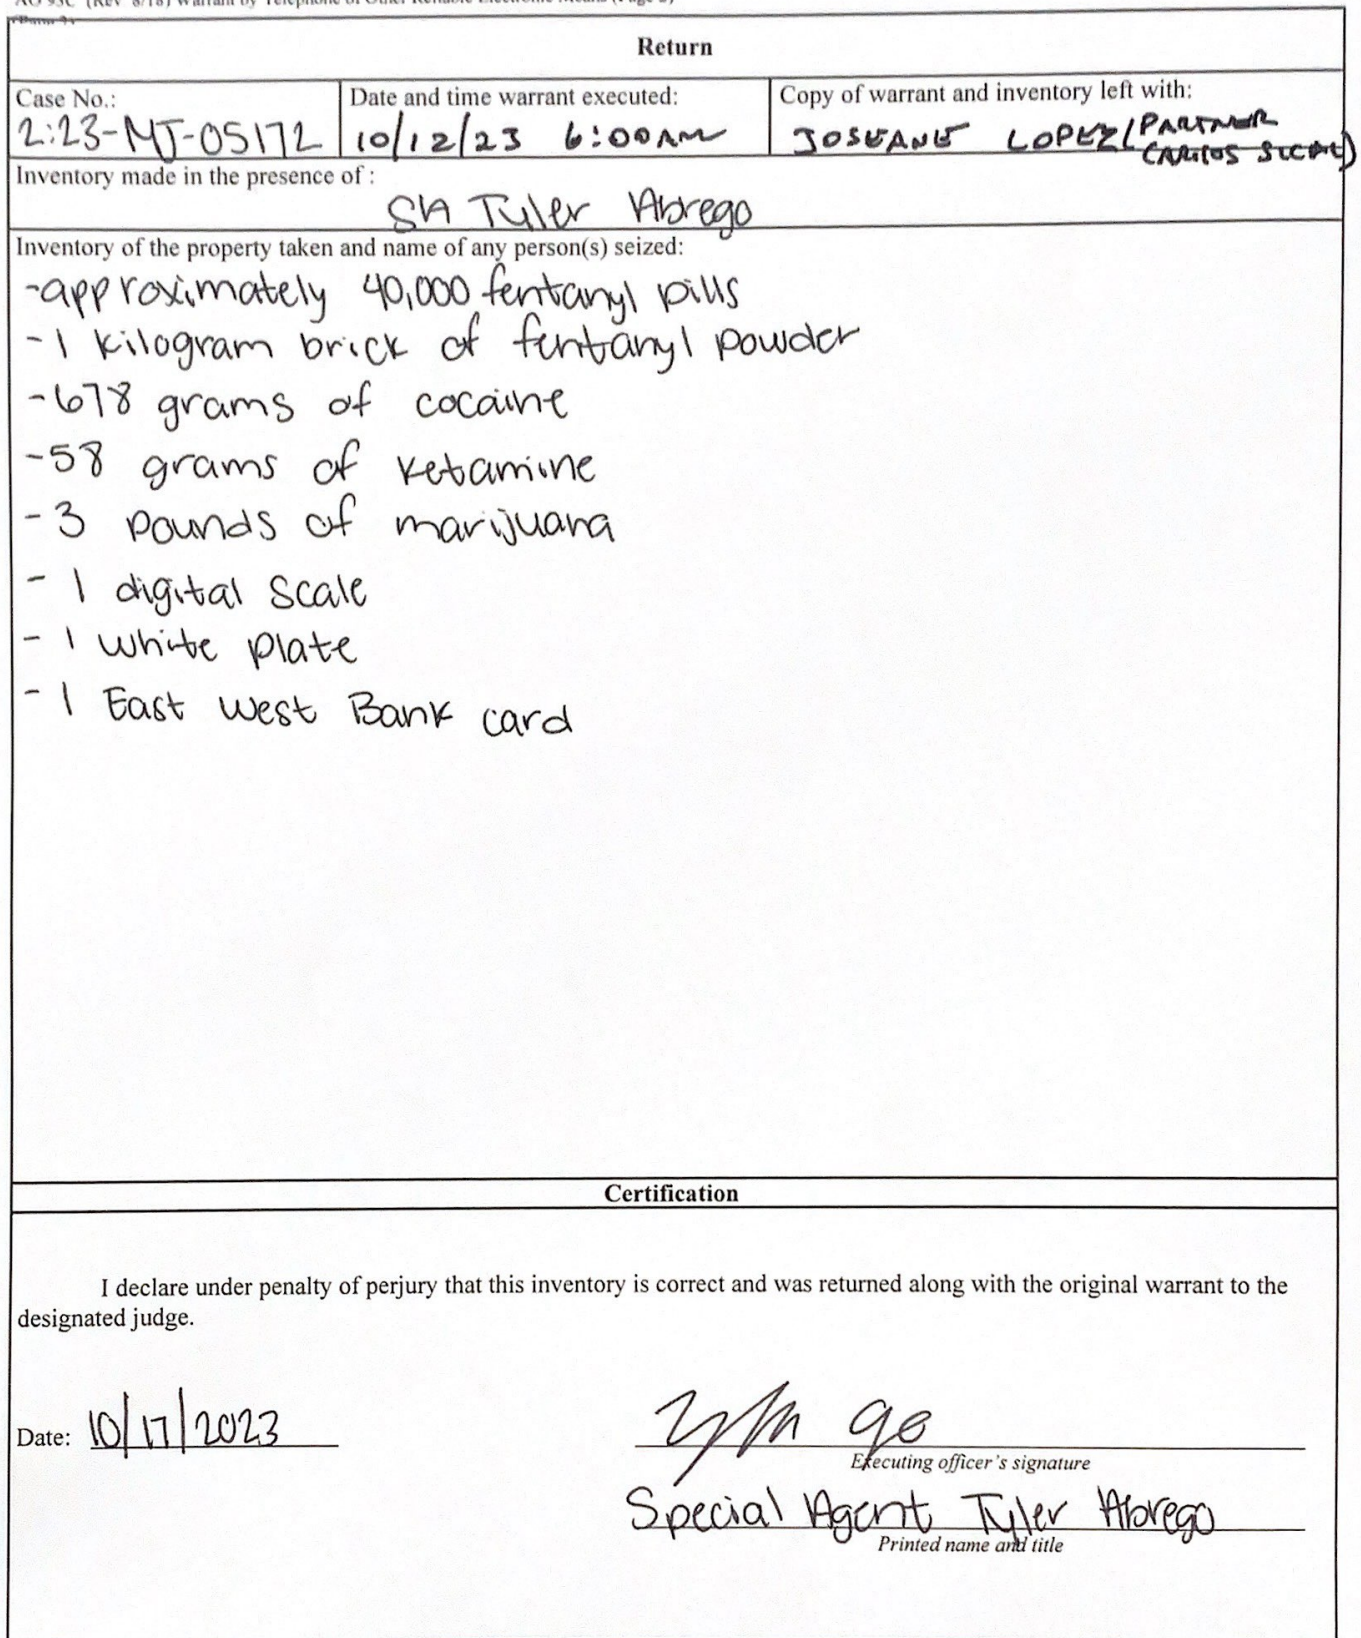 AO 93C (Rev 8/18) Warrant by Telephone or Other Reliable Electronic Means (Page 2)
Return
Case No.:
2:23-MJ-05172
Date and time warrant executed:
10/12/23 6:00AM
Copy of warrant and inventory left with:
JOSEANE LOPEZ (PARTNER
CARLOS
Inventory made in the presence of :
SA Tyler Abrego
Inventory of the property taken and name of any person(s) seized:
-approximately 40,000 fentanyl pills
-1 kilogram brick of fentanyl powder
-678 grams of cocaine
-58 grams of ketamine
-3 pounds of marijuana
- 1 digital scale
- 1 white plate
- 1 East West Bank card
Certification
I declare under penalty of perjury that this inventory is correct and was returned along with the original warrant to the
designated judge.
Date: 10/17/2023
Executing officer's signature
Special Agent Tyler Abrego
Printed name and title